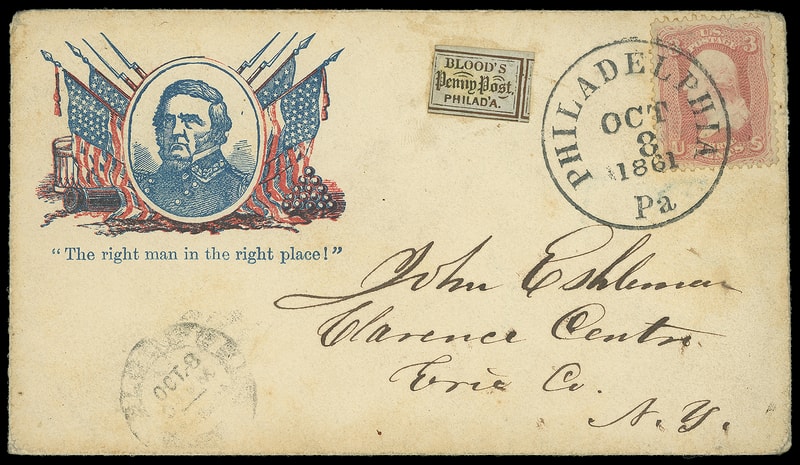 BLOOD'S
Penny Post,
PHILAD'A.
PHILADELPHIA
OCT
8
1861
Pa
U.S.
POSTAGE
3
U
S
"The right man in the right place!"
John Eshleman
Clarence Centre
Erie Co.
N. Y.
OCT. 8